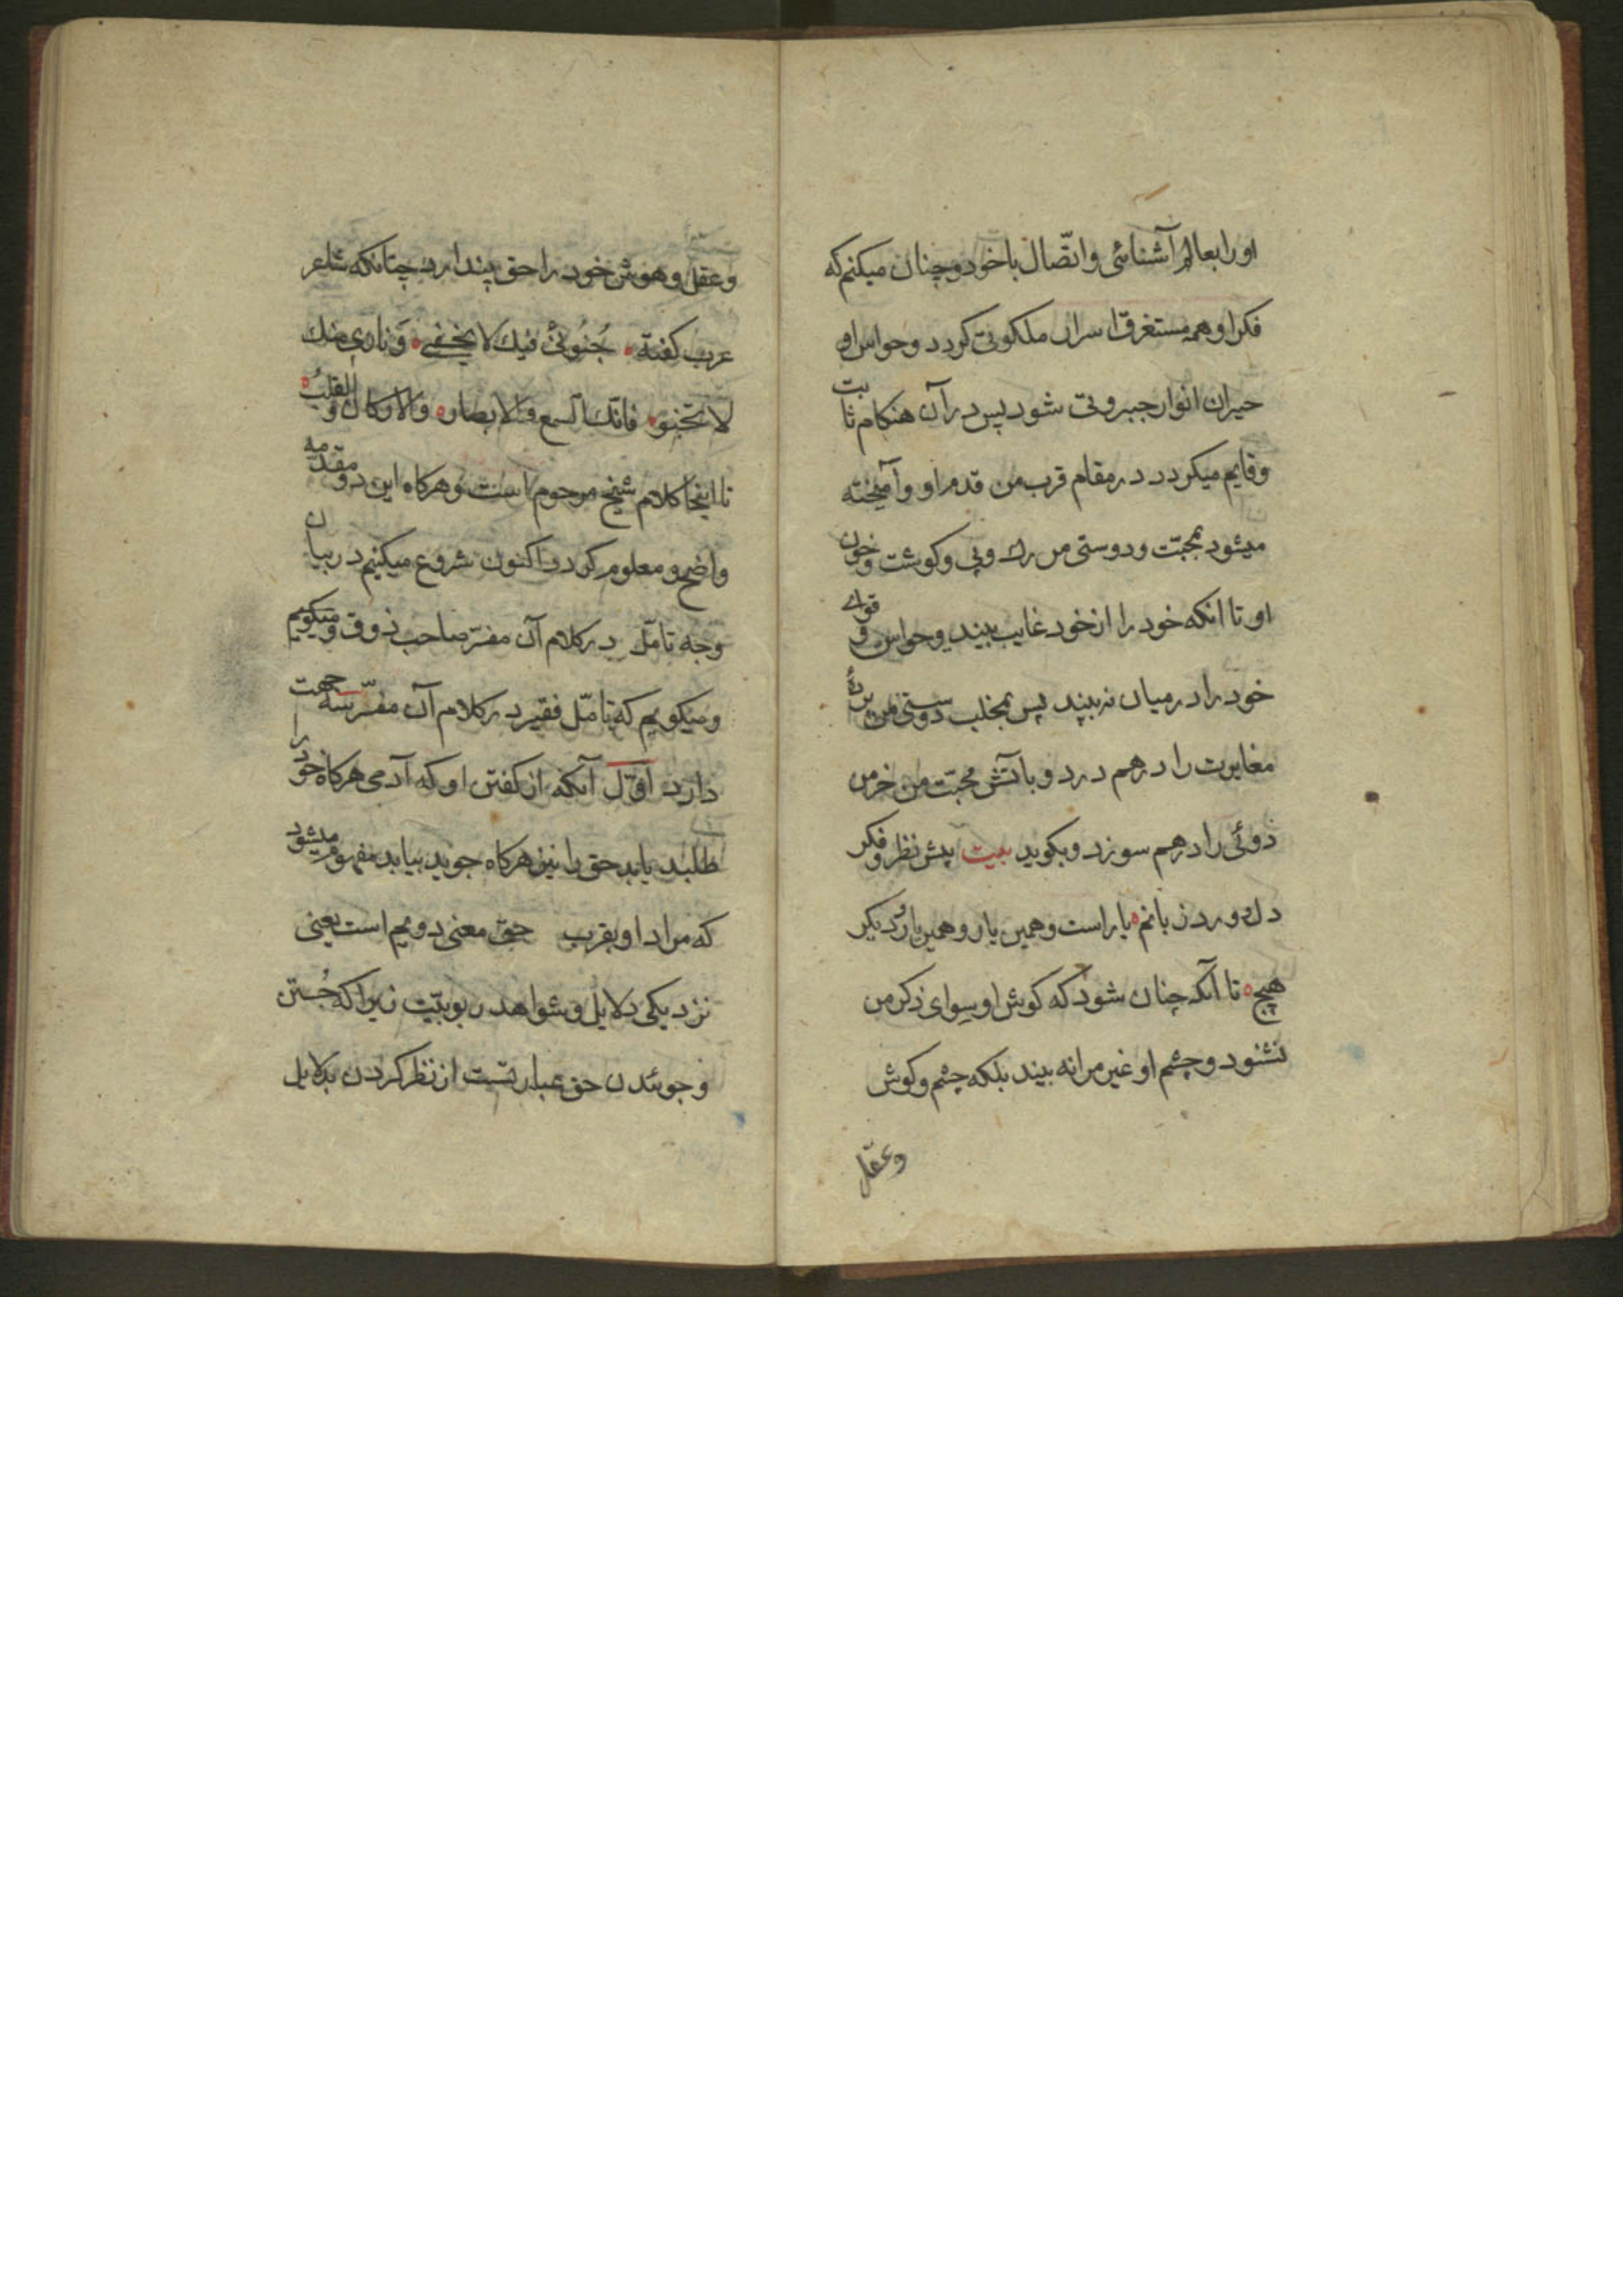 او را بعالم آشنائی و اتّصال با خود و چنان میکنم که
فکر او همه مستغرق اسرار ملکوتی کردد و حواس او
حیران انوار جبروتی شود پس در آن هنکام ثابت
و قایم میکردد در مقام قرب من قدم او و آمیخته
میشود بمحبّت و دوستی من رک و پی و کوشت و خون
او تا انکه خود را از خود غایب بیند و حواس و قوای
خود را در میان نه بیند پس بمخلب دوستی من پردهٔ
مغایرت را درهم درد و باتش محبّت من خرمن
دوئی را درهم سوزد و بکوید بیت پیش نظر و فکر
دل و ورد زبانم یار است و همین یار و همین یار و دیکر
هیچ تا آنکه چنان شود که کوش او سوای ذکر من
نشنود و چشم او غیر مرا نه بیند بلکه چشم و کوش
و عقل
و عقل و هوش خود را حق پندارد چنانکه شاعر
عرب کفته جُنُونی فیك لا یخفی وَ ناری منك
لا تخبو فانت السمع و الابصار و الارکان و القلبُ
تا اینجا کلام شیخ مرحوم است و هرکاه این دو مقدمه
واضح و معلوم کردد اکنون شروع میکنیم در بیان
وجه تامّل در کلام آن مفسّر صاحب ذوق و میکویم
و میکویم که تامّل فقیر در کلام آن مفسّر سه جهت
دارد اوّل آنکه از کفتن او که آدمی هرکاه خود را
طلبد یابد حق را نیز هرکاه جوید بیابد مفهوم میشود
که مراد او بقرب حق معنی دویم است یعنی
نزدیکی دلایل و شواهد ربوبیّت زیرا که جُستن
و جوئیدن حق عبارتست از نظر کردن بدلایل